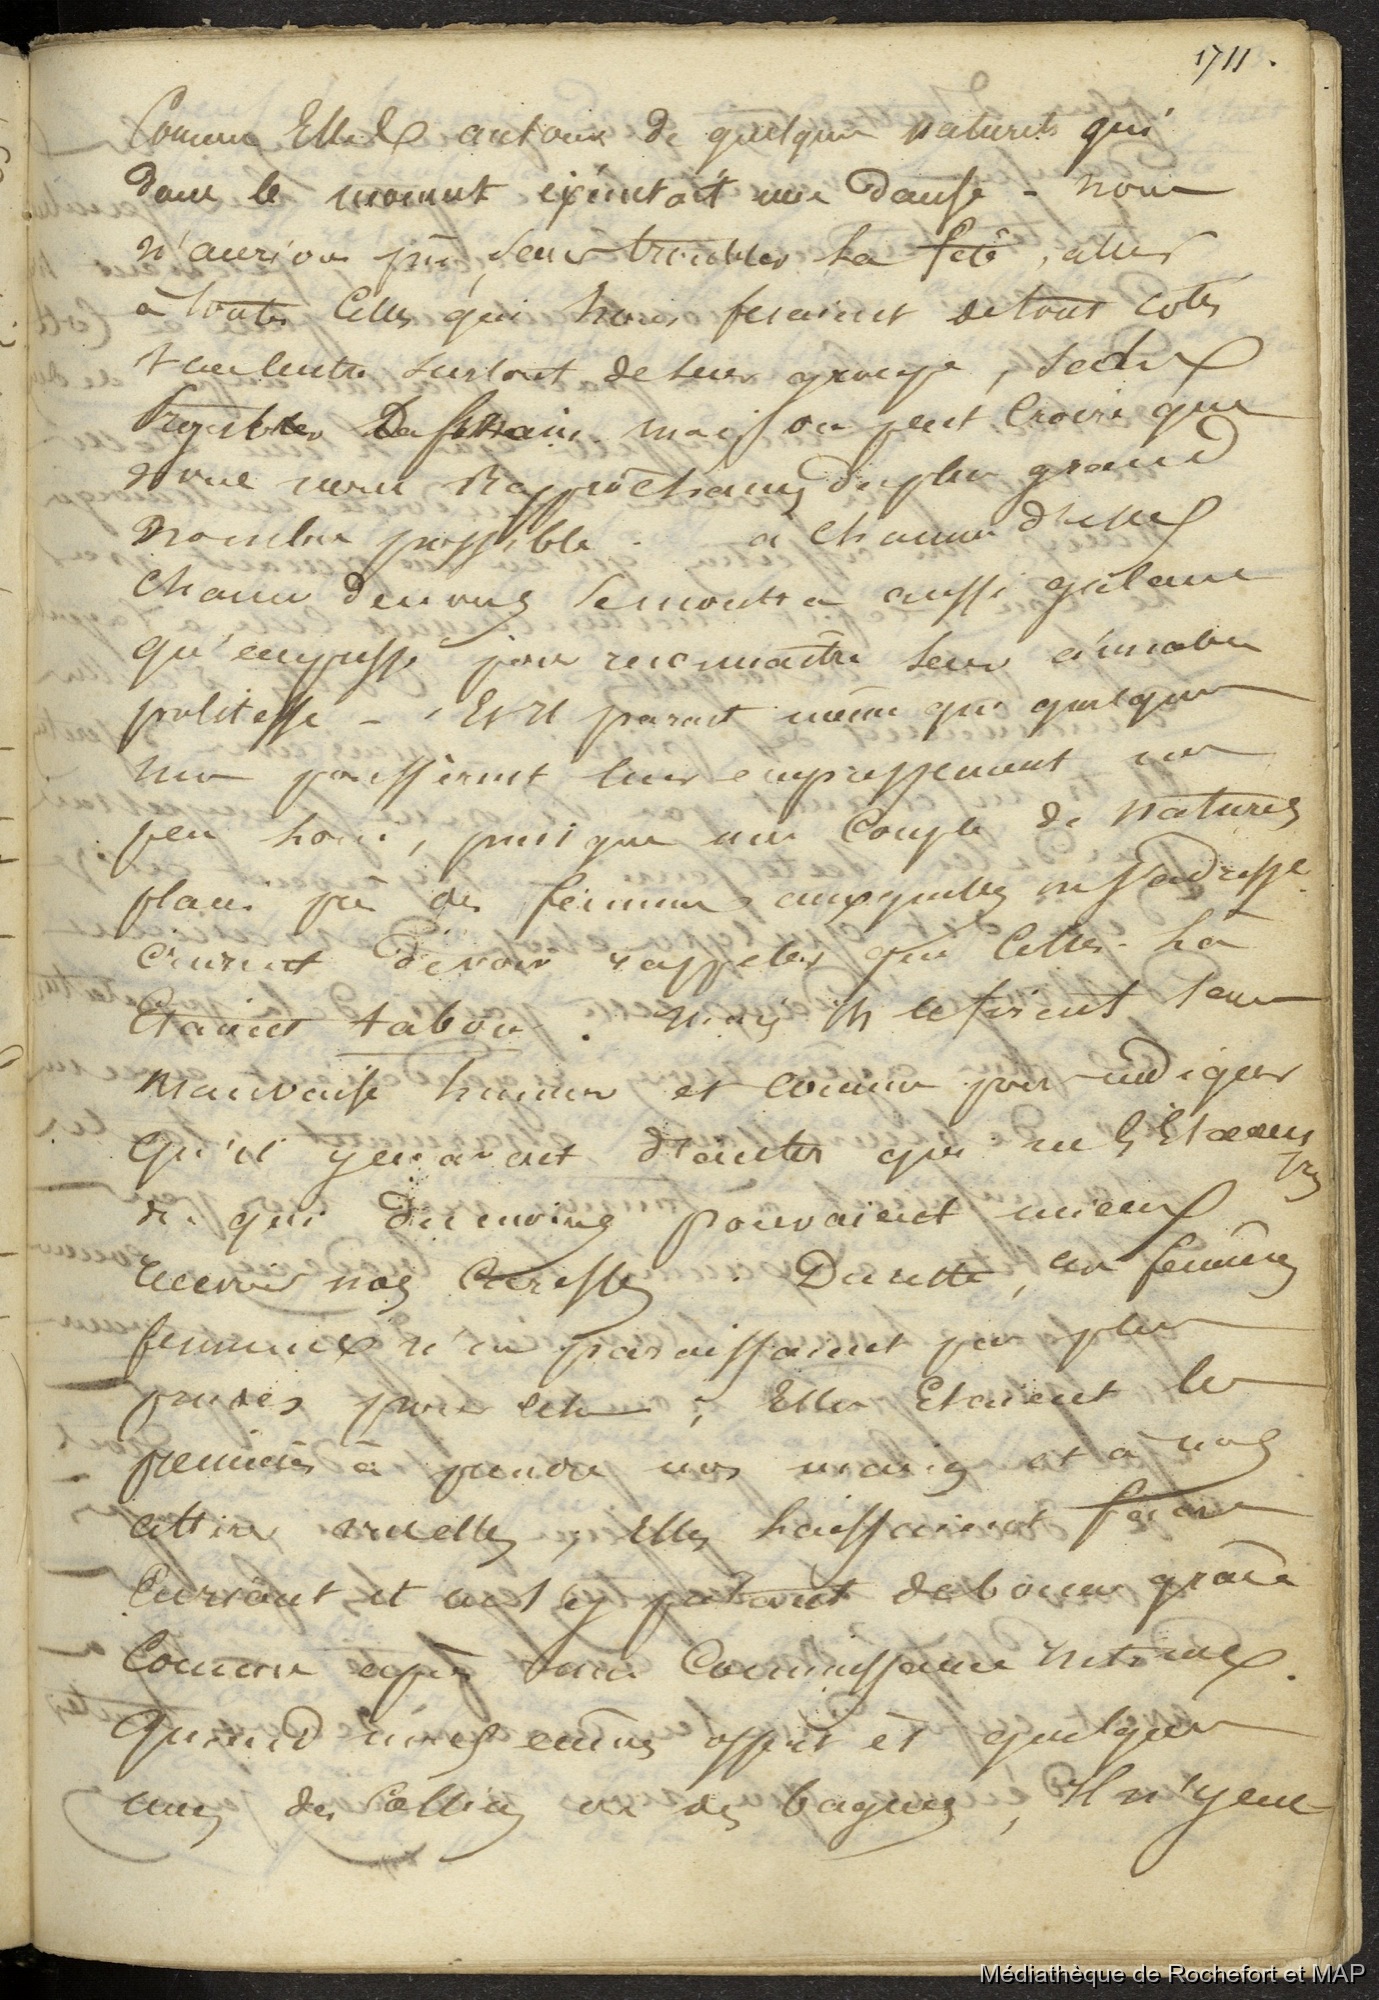 1711.
Comme Elles autour de quelques naturels qui
dans le moment exécutoit une danse - nous
n'aurions pu, sans troubler la fête, aller
à toutes Celles qui nous feraient de tout cotés
surtout de leur groupe,
mais on peut Croire que
nous nous Rapprochames du plus grand
nombre possible. à chacune d'elles
chacun de nous se montra aussi galant
qu'empressé pour reconnaître leur aimable
politesse - Et il parait même que quelques
uns poussèrent leur empressement un
peu loin, puisque un Couple de naturels
placés près des femmes auxquelles on s'adressa
crurent devoir rappeler que Celles-là
Etaient tabou. Mais ils le firent sans
mauvaise humeur et comme pour indiquer
qu'il y en avait d'autres qui ne l'Etaient
pas
de qui du moins pouvaient mieux
recevoir nos Caresses. Du reste, ces femmes
femmes n'en paraissaient pas plus
pour cela ; Elles Etaient les
premières à prendre nos mains et à nous
attirer vers elles, Elles laissaient faire
Curieux et de bonne grace
Comme après une Connaissance
Quand nous eûmes offert et quelques
unes des Colliers ou des bagues, Il n'y eut
Médiathèque de Rochefort et MAP